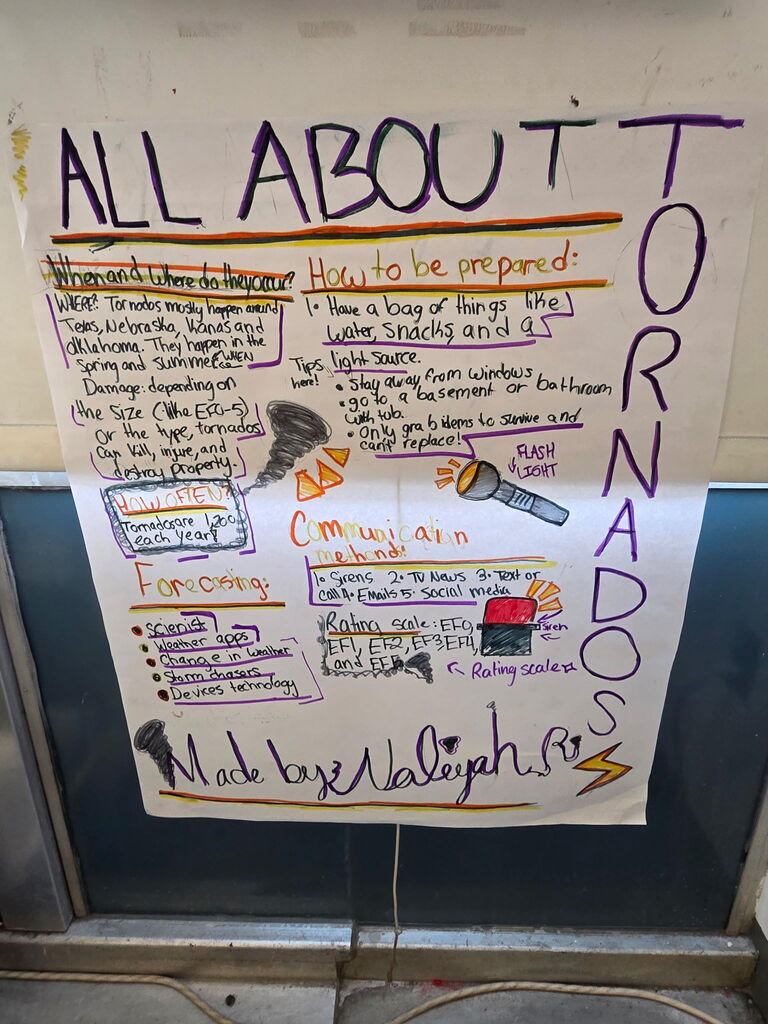 ALL ABOUT
TORNADOS
When and Where do they occur?
WHERE? Tornados mostly happen around
Texas, Nebraska, Kanas and
Oklahoma. They happen in the
spring and summer WHEN
Damage: depending on
the Size (like EF0-5)
Or the type, tornados
can kill, injure, and
destroy property.
HOW OFTEN?
Tornados are 1,200
each year!
Forecasting:
Scientist
Weather apps
Change in weather
Storm chasers
Devices technology
How to be prepared:
1. Have a bag of things like
water, snacks, and a
light source.
Tips
here!
• Stay away from windows
• go to a basement or bathroom
with tub.
• Only grab idems to survive and
can't replace!
FLASH
LIGHT
Communication
methonds:
1. Sirens 2. TV News 3. Text or
call 4. Emails 5. Social media
Rating scale: EF0,
EF1, EF2, EF3, EF4,
and EF5
Siren
Rating scale
Made by: Naliyah. R.